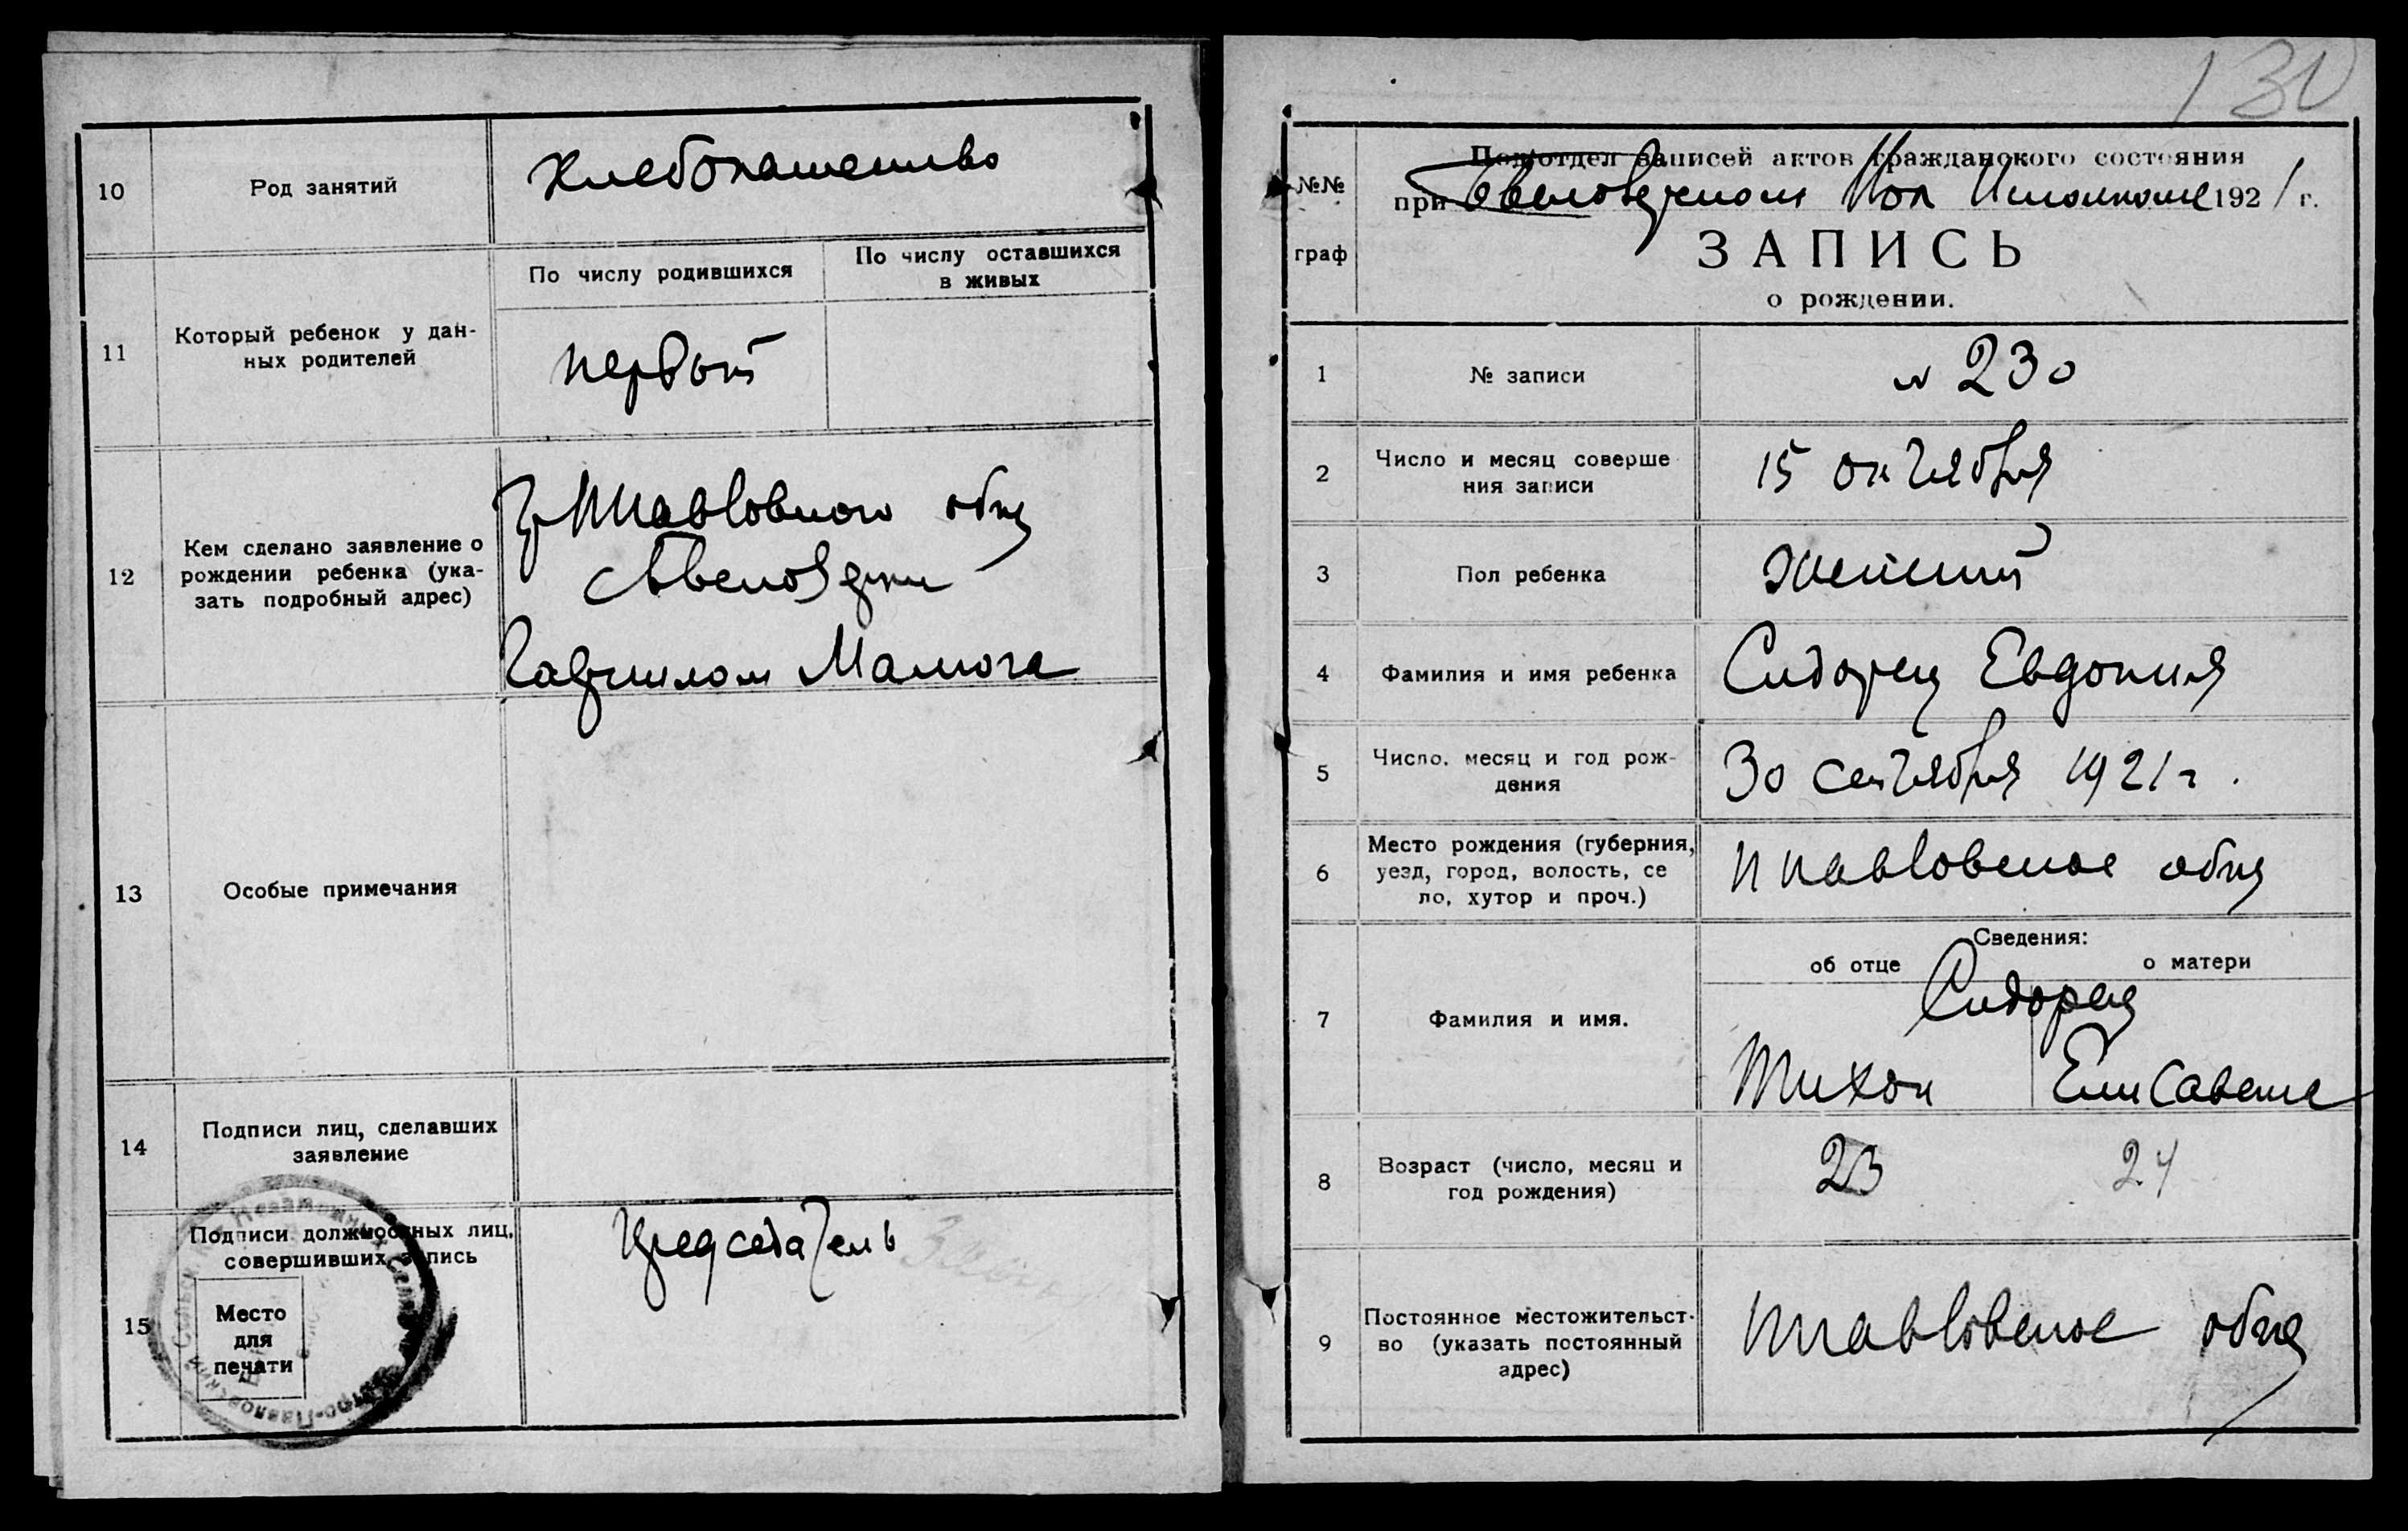 10
Род занятий
Хлебопашество
11
Который ребенок у дан-
ных родителей
По числу родившихся
По числу оставшихся
в живых
первый
12
Кем сделано заявление о
рождении ребенка (ука-
зать подробный адрес)
гр ППавловского общ
Гаврилом Мамога
13
Особые примечания
14
Подписи лиц, сделавших
заявление
15
Подписи должностных лиц,
совершивших запись
Место
для
печати
Председатель
130
№№
граф
Подотдел записей актов гражданского состояния
при Вол Исполкоме 1921 г.
ЗАПИСЬ
о рождении.
1
№ записи
№ 230
2
Число и месяц соверше
ния записи
15 октября
3
Пол ребенка
Женский
4
Фамилия и имя ребенка
Сидорец Евдокия
5
Число, месяц и год рож-
дения
30 сентября 1921 г.
6
Место рождения (губерния,
уезд, город, волость, се
ло, хутор и проч.)
ППавловское общ
7
Фамилия и имя.
Сведения:
об отце
о матери
Сидорец
Тихон
Елисавета
8
Возраст (число, месяц и
год рождения)
23
24
9
Постоянное местожительст-
во (указать постоянный
адрес)
ППавловское общ